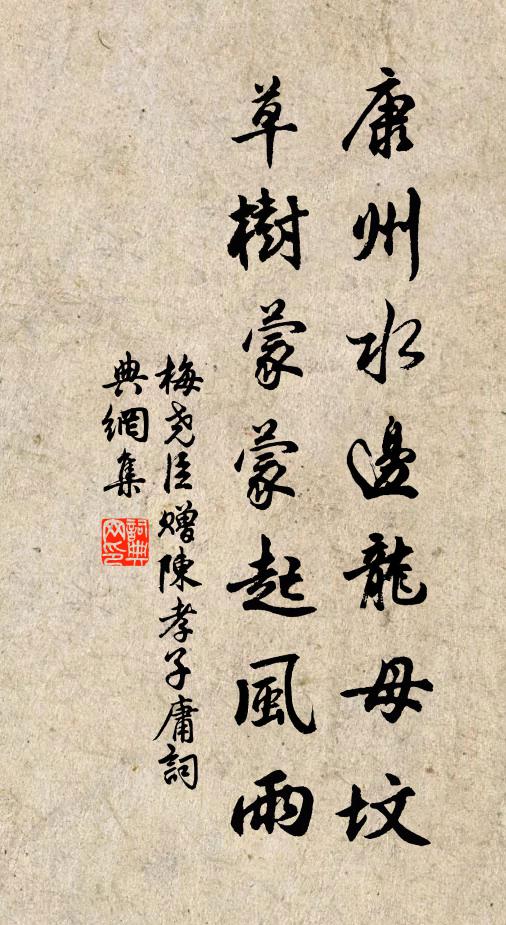 康州水邊龍母坟
草樹蒙蒙起風雨
梅尧臣赠陳孝子庸詞
典網集
詞典网印